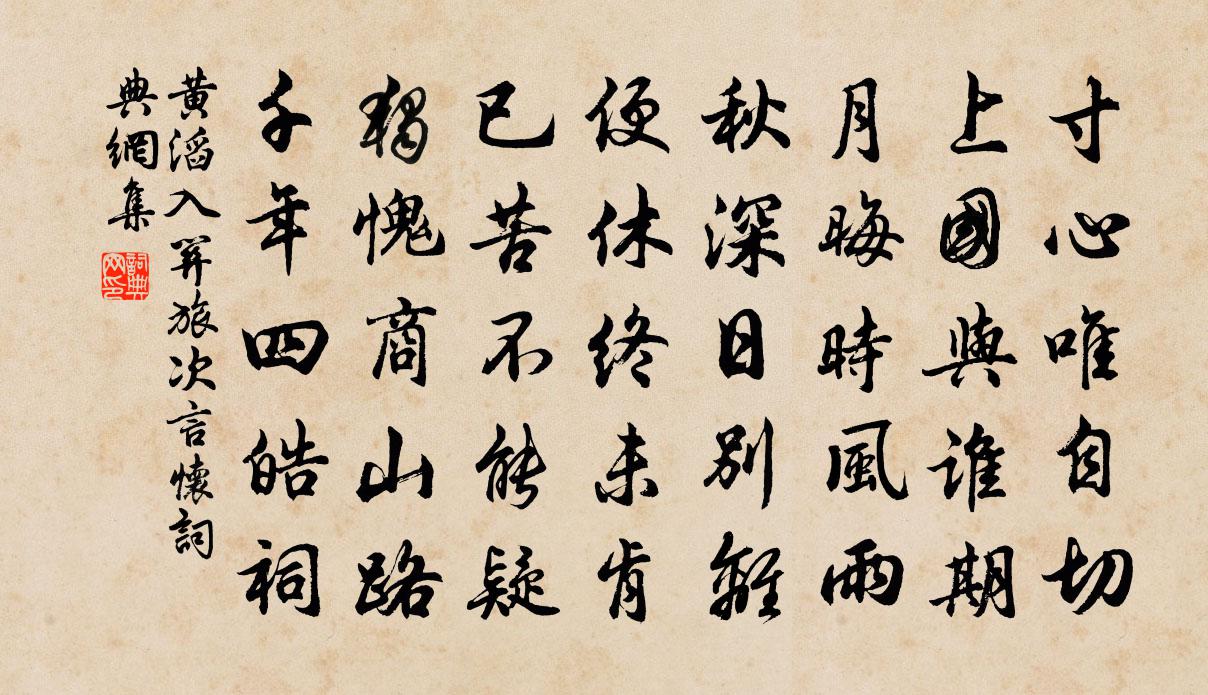 寸心唯自切
上國與誰期
月晦時風雨
秋深日別離
便休終未肯
已苦不能疑
獨愧商山路
千年四皓祠
黃滔入關旅次言懷詞
典網集
詞典网印